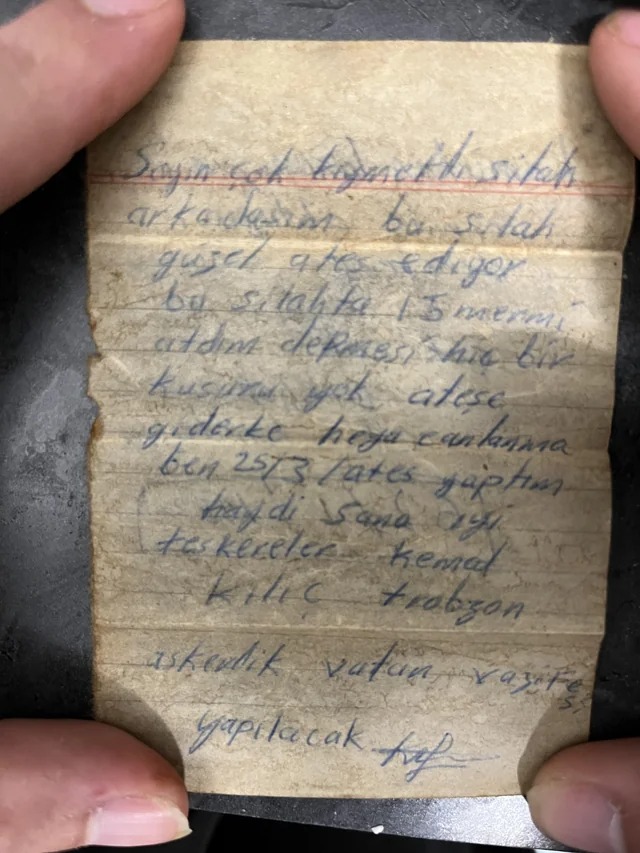 Sayın çok kıymetli silah
arkadaşım bu silah
güzel ateş ediyor
bu silahta 15 mermi
atdım depmesi hiç bir
kusuru yok ateşe
giderke heyacanlanma
ben 25/3 ateş yaptım
haydi sana iyi
teskereler kemal
kılıç trabzon
askerlik vatan vazifesi
yapılacak